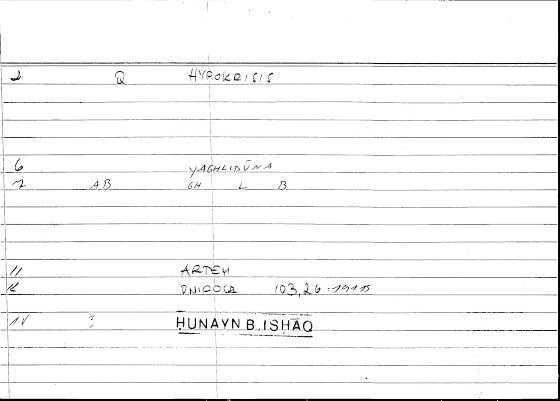 2 Q HYPOKRISIS
6 YAGHLIBŪNA
7 AB GH L B
11 ARTEM
12 ONIROCR 103,26
14 ? ḤUNAYN B. ISḤĀQ